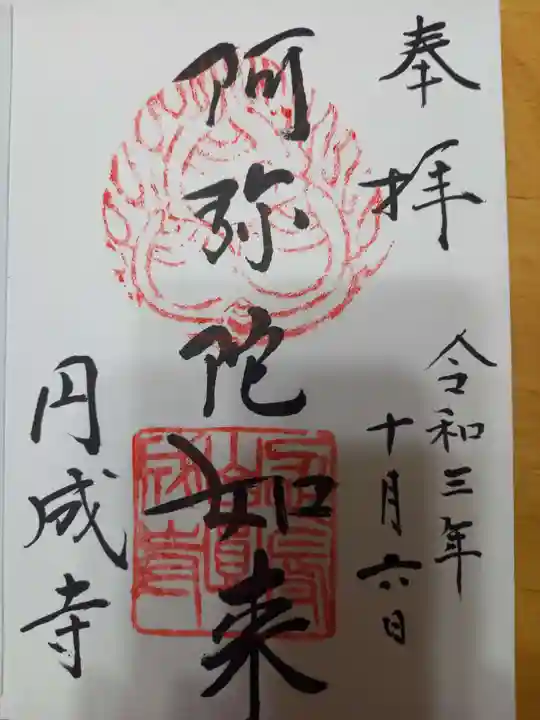 奉拝
令和三年
十月六日
阿弥陀如来
円成寺